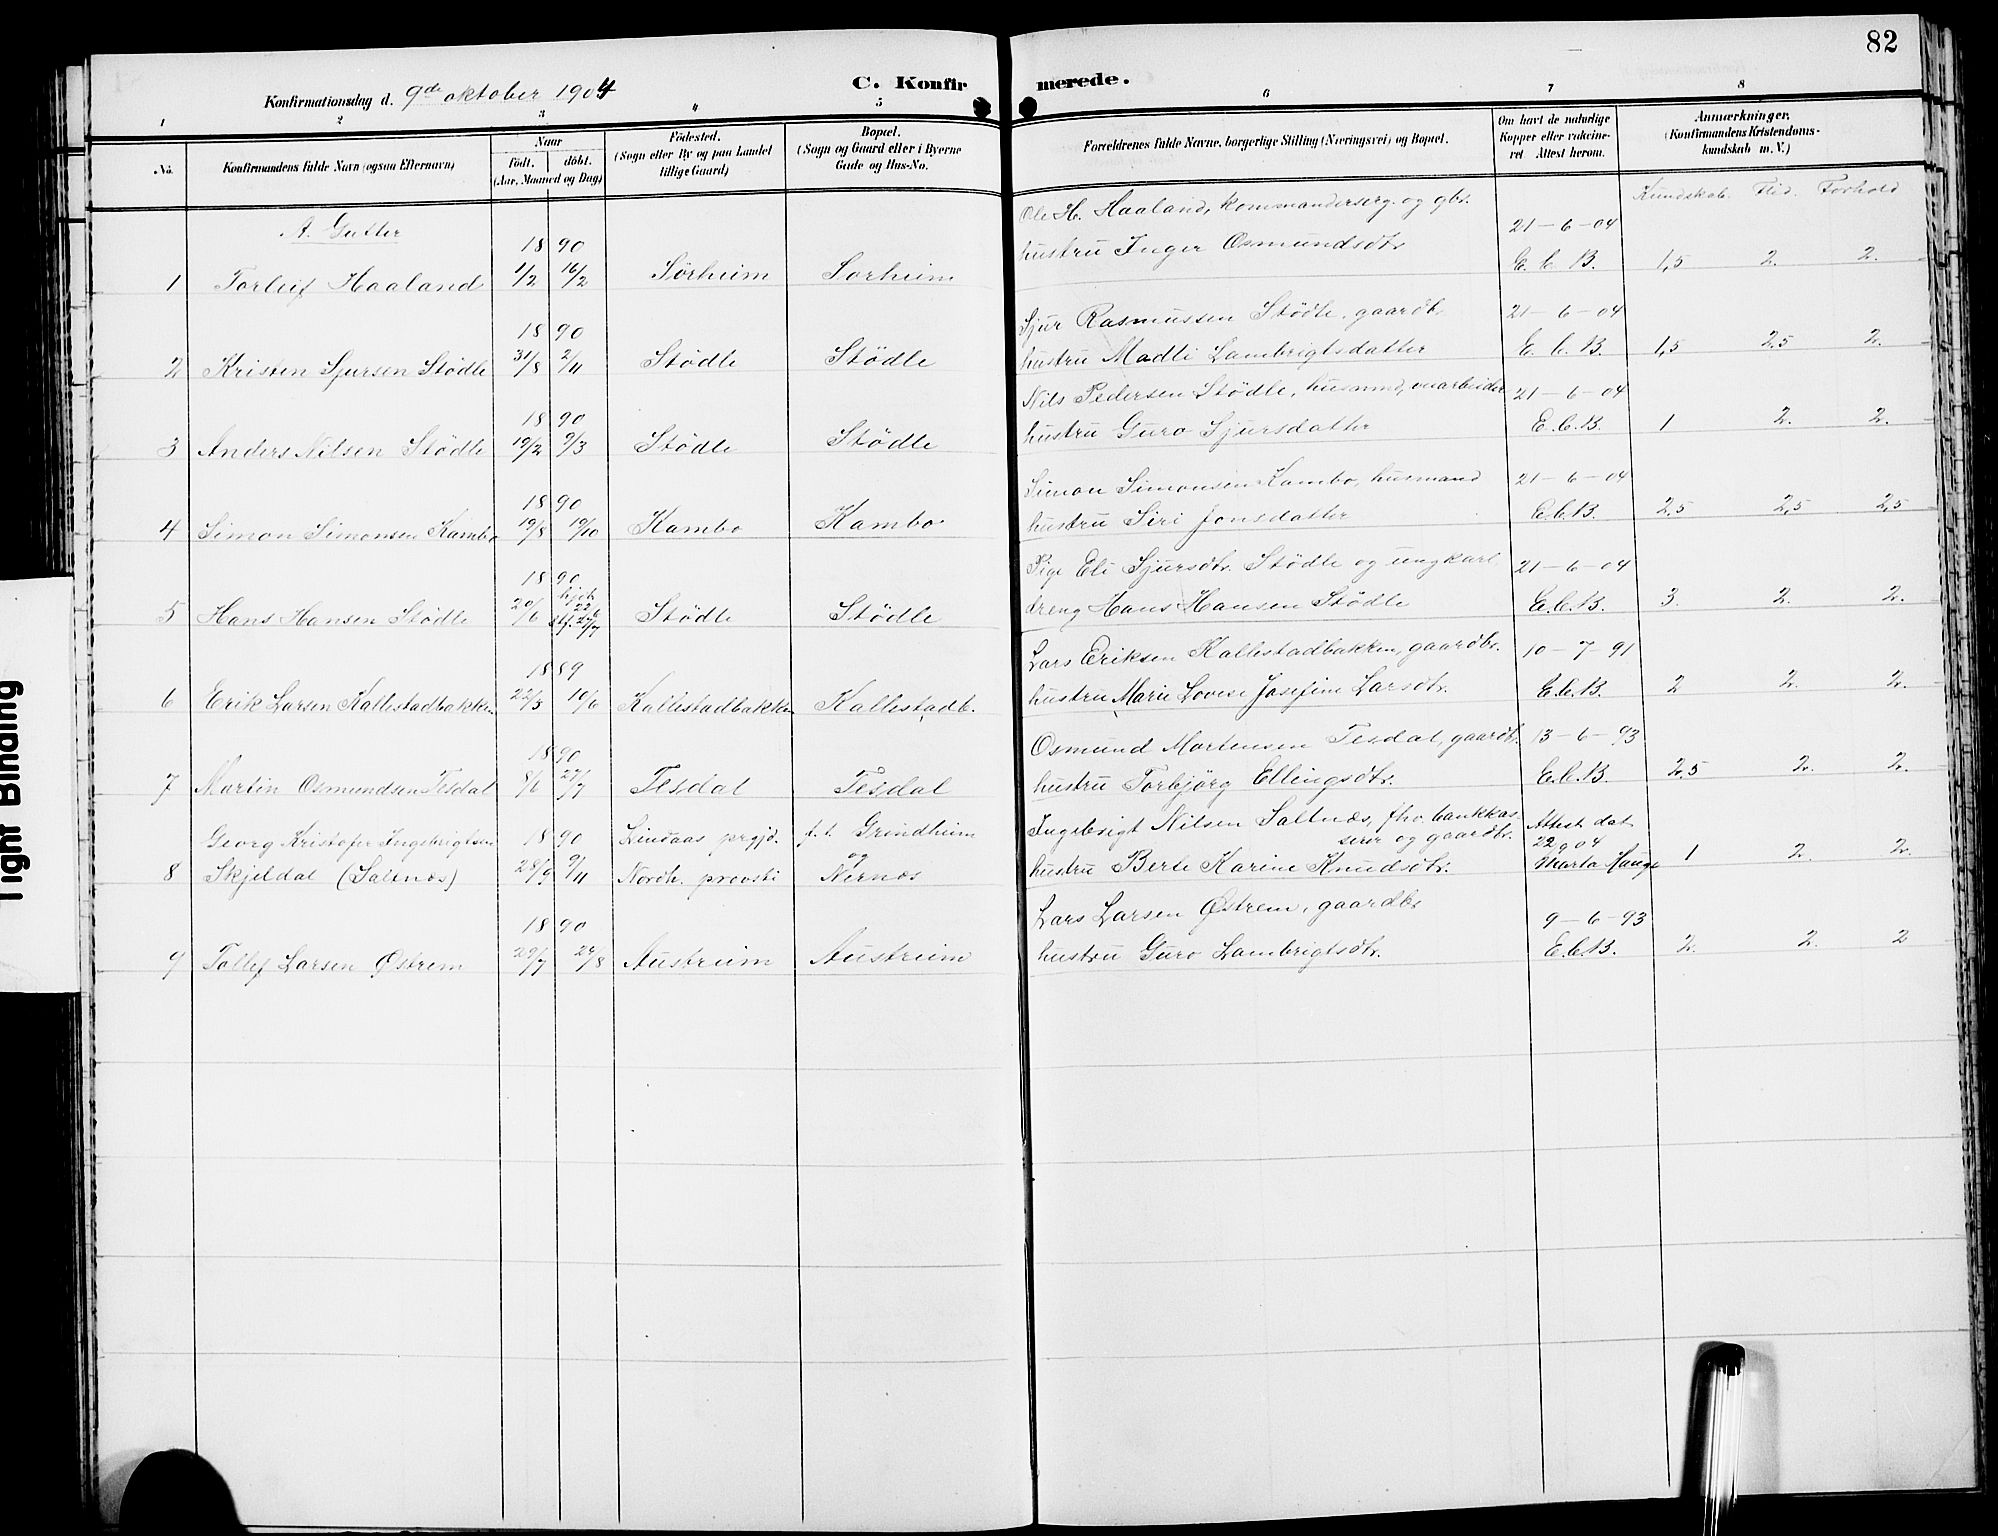 82
C. Konfirmerede.
Konfirmationsdag d. 9de oktober 1904
1 2 3 4 5 6 7 8
No.
Konfirmandens fulde Navn (ogsaa Efternavn)
Naar
født. døbt.
(Aar, Maaned og Dag)
Fødested.
(Sogn eller By og paa Landet
tillige Gaard)
Bopæl.
(Sogn og Gaard eller i Byerne
Gade og Hus-No.
Forældrenes fulde Navne, borgerlige Stilling (Næringsvei) og Bopæl.
Om havt de naturlige
Kopper eller vakcine-
ret Attest herom.
Anmærkninger.
(Konfirmandens Kristendoms-
kundskab m. V.)
Kundskab. Flid. Forhold
A. Gutter
Ole H. Haaland, kommanderserg. og gbr.
18 90 21-6-04
hustru Inger Osmundsdtr.
1 Torleif Haaland 1/2 16/2 Sörheim Sorheim E. C. B. 1,5 2. 2.
18 90 Sjur Rasmussen Stödle, gaardb. 21-6-04
2 Kristen Sjursen Stödle 31/8 2/11 Stödle Stödle hustru Madli Lambrigtsdatter E. C. B. 1,5 2,5 2.
18 90 Nils Pedersen Stödle, husmnd, 21-6-04
3 Anders Nilsen Stödle 19/2 9/3 Stödle Stödle hustru Guro Sjursdatter E. C. B. 1 2. 2.
18 90 Simon Simonsen Kambo, husmand 21-6-04
4 Simon Simonsen Kambo 19/8 19/10 Kambo Kambo hustru Siri Jonsdatter E. C. B. 2,5 2,5 2,5
18 90 Pige Eli Sjursdtr. Stödle og ungkarl 21-6-04
hjdb. 22/6
5 Hans Hansen Stödle 20/6 stf. 27/7 Stödle Stödle dreng Hans Hansen Stödle E. C. B. 3. 2. 2.
18 89 Lars Eriksen Kallestadbakken, gaardbr. 10-7-91
6 Erik Larsen Kallestadbakken 10/6 Kallestadbakken Kallestadb. hustru Marie Lovise Josefine Larsdtr. E. C. B. 2 2. 2.
18 90 Osmund Mortensen Tesdal, gaardbr. 13-6-93
7 Martin Osmundsen Tesdal 8/6 27/7 Tesdal Tesdal hustru Torbjörg Ellingsdtr. E. C. B. 2,5 2. 2.
Georg Kristofer Ingebrigtsen 18 90 Lindaas prgjd. f. t. Grindheim Ingebrigt Nilsen Saltnæs, fhv. bankkas-
serer og gaardbr. Attest dat.
og 22 9 04
8 Skjeldal (Saltnæs) 28/9 9/11 Nordh. provsti Nernæs hustru Berte Karine Knudsdtr. Marta Hauge 1 2. 2.
18 90 Lars Larsen Østrem, gaardbr 9-6-93
9 Tollef Larsen Østrem 29/7 24/8 Austreim Austreim hustru Guro Lambrigtsdtr. E. C. B. 2. 2. 2
Tight Binding